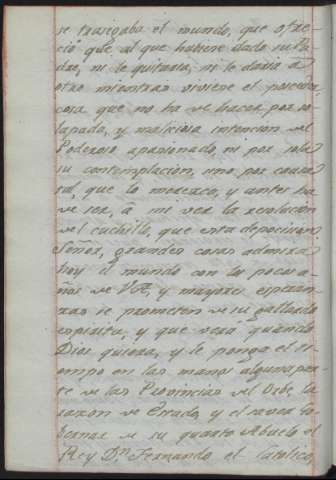 se trasegaba el mundo, que ofre-
ció que al que hubiere dado su Pa-
dre, ni le quitaria, ni le daria a
otro mientras viviese el poseedor,
cosa que no ha de hacer por so-
lapada, y maliciosa intencion de
Poderoso apasionado, ni por sola
su contemplacion, sino por causa
tal, que lo merezca, y antes ha
de ser, â mi ver la resolucion
del cuchillo, que esta deposicion
Señor, grandes cosas admira
hoy el mundo con los pocos a-
ños de V. , y mayores esperan-
zas se prometen de su gallardo
espiritu, y que vera quando
Dios quiera, y le ponga el ti-
empo en las manos alguna par-
te de las Provincias del Orbe, la
razon de Estado, y el saver Go-
bernar de su quarto Abuelo el
Rey Dn. Fernando el Catolico,